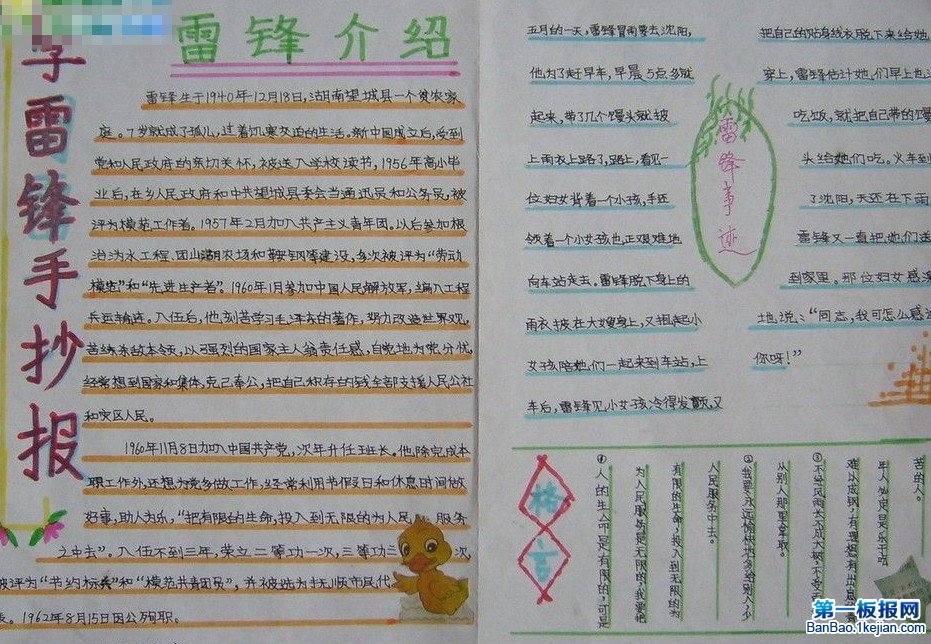 学雷锋手抄报
雷锋介绍
雷锋生于1940年12月18日,湖南望城县一个贫农家
庭。7岁就成了孤儿,过着饥寒交迫的生活。新中国成立后,受到
党和人民政府的亲切关怀,被送入学校读书,1956年高小毕
业后,在乡人民政府和中共望城县委会当通迅员和公务员,被
评为模范工作者。1957年2月加入共产主义青年团。以后参加根
治沩水工程、团山湖农场和鞍钢等建设,多次被评为“劳动
模范”和“先进生产者”。1960年1月参加中国人民解放军,编入工程
兵运输连。入伍后,他刻苦学习毛泽东的著作,努力改造世界观,
苦练杀敌本领,以强烈的国家主人翁责任感,自觉地为党分忧,
经常想到国家和集体,克己奉公,把自己积存的钱全部支援人民公社
和灾区人民。
1960年11月8日加入中国共产党,次年升任班长。他除完成本
职工作外,还想为党多做工作,经常利用节假日和休息时间做
好事,助人为乐,“把有限的生命,投入到无限的为人民 服务
之中去”。入伍不到三年,荣立二等功一次,三等功三 次,
被评为“节约标兵”和“模范共青团员”,并被选为抚顺市民代
表。1962年8月15日因公殉职。
雷锋事迹
五月的一天,雷锋冒雨要去沈阳,
他为了赶早车,早晨5点多就
起来,带了几个馒头就披
上雨衣上路了,路上,看见一
位妇女背着一个小孩,手还
领着一个小女孩也正艰难地
向车站走去。雷锋脱下身上的
雨衣披在大嫂身上,又抱起小
女孩陪她们一起来到车站,上
车后,雷锋见小女孩冷得发颤,又
把自己的贴身线衣脱下来给她
穿上,雷锋估计她们早上也没
吃饭,就把自己带的馒
头给她们吃。火车到
了沈阳,天还在下雨
雷锋又一直把她们送
到家里。那位妇女感激
地说:“同志,我可怎么感谢
你呀!”
格言
人的生命是有限的,可是,
为人民服务是无限的,我要把
有限的生命,投入到无限的为
人民服务中去。
②我要永远愉快地多给别人,少
从别人那里拿取。
③不经风雨,长不成大树,不受百炼,
难以成钢,有理想有出息的青
年人必定是乐于吃
苦的人。
第一板报网
BanBao.1kejian.com